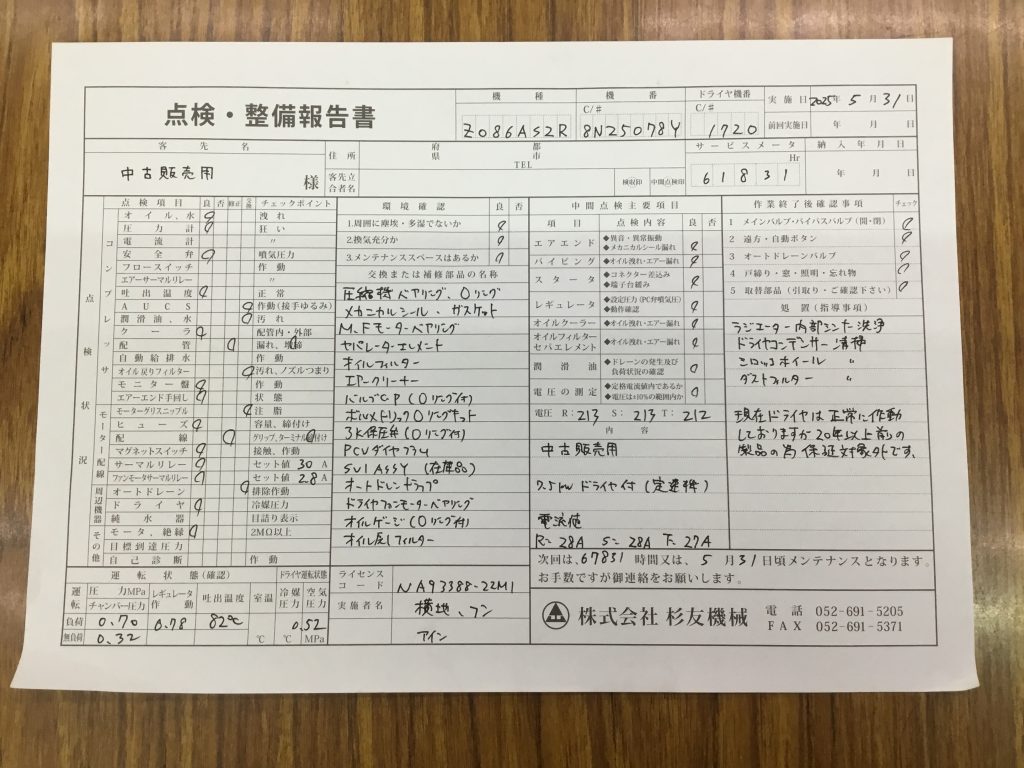 点検・整備報告書
機種
Z086AS2R
機番
C/#
8N25078Y
ドライヤ機番
C/#
1720
実施日 2025年 5月 31日
前回実施日 年 月 日
客先名
中古販売用 様
住所 府県 都市
TEL
客先立合者名
検収印 中間点検印
サービスメータ
61831 Hr
納入年月日
年 月 日
点検状況
点検項目 良 否 修正 交換 チェックポイント
コンプレッサ
オイル、水 洩れ
圧力計 狂い
電流計 〃
安全弁 噴気圧力
フロースイッチ 作動
エアーサーマルリレー 〃
吐出温度 正常
AUCS 作動(接手ゆるみ)
潤滑油、水 汚れ
クーラ 配管内・外部
配管 漏れ、増締
自動給排水 作動
オイル戻りフィルター 汚れ、ノズルつまり
モニター盤 作動
エアーエンド手回し 状態
モーター配線
モーターグリスニップル 注脂
ヒューズ 容量、締付け
配線 グリップ、ターミナル締付け
マグネットスイッチ 接触、作動
サーマルリレー セット値 30 A
ファンモータサーマルリレー セット値 2.8 A
周辺機器
オートドレーン 排除作動
ドライヤ 冷媒圧力
純水器 目詰り表示
その他
モータ、絶縁 2MΩ以上
目標到達圧力
自己診断 作動
環境確認 良 否
1.周囲に塵埃・多湿でないか
2.換気充分か
3.メンテナンススペースはあるか
交換または補修部品の名称
圧縮機ベアリング、Oリング
メカニカルシール・ガスケット
M、Fモーターベアリング
セパレーターエレメント
オイルフィルター
エアークリーナー
バルブCP(Oリング付)
ボルメトリックOリングキット
3K保圧弁(Oリング付)
PCVダイヤフラム
SV1 ASSY (在庫品)
オートドレントラップ
ドライヤファンモーターベアリング
オイルゲージ(Oリング付)
オイル戻しフィルター
中間点検主要項目
項目 点検内容 良 否
エアエンド ◆異音・異常振動 ◆メカニカルシール漏れ
パイピング ◆オイル洩れ・エアー漏れ
スタータ ◆コネクター差込み ◆端子台緩み
レギュレータ ◆設定圧力(PC弁噴気圧) ◆動作確認
オイルクーラー ◆オイル洩れ・エアー漏れ
オイルフィルター セパエレメント ◆オイル洩れ・エアー漏れ
潤滑油 ◆ドレーンの発生及び負荷状況の確認
電圧の測定 ◆定格電流値内であるか ◆電圧は±10%の範囲内か
電圧 R: 213 S: 213 T: 212
内容
中古販売用
7.5kw ドライヤ付(定速機)
電流値
R= 28A S= 28A T= 27A
作業終了後確認事項 チェック
1 メインバルブ・バイパスバルブ(開・閉)
2 遠方・自動ボタン
3 オートドレーンバルブ
4 戸締り・窓・照明・忘れ物
5 取替部品(引取り・ご確認下さい)
処置(指導事項)
ラジエーター内部シンナー洗浄
ドライヤコンデンサー清掃
シロッコホイール 〃
ダストフィルター 〃
現在ドライヤは正常に作動
しておりますが20年以上前の
製品の為保証対象外です。
次回は、67831 時間又は、5月 31日頃メンテナンスとなります。
お手数ですが御連絡をお願いします。
運転状態(確認) ドライヤ運転状態
運転 圧力MPa チャンバー圧力 レギュレータ作動 吐出温度 室温 冷媒圧力 空気圧力
負荷 0.70 0.78 82℃ 0.52
無負荷 0.32 ℃ ℃ MPa
ライセンスコード NA93388-22M1
実施者名 横地、フン
アイン
株式会社 杉友機械
電話 052-691-5205
FAX 052-691-5371